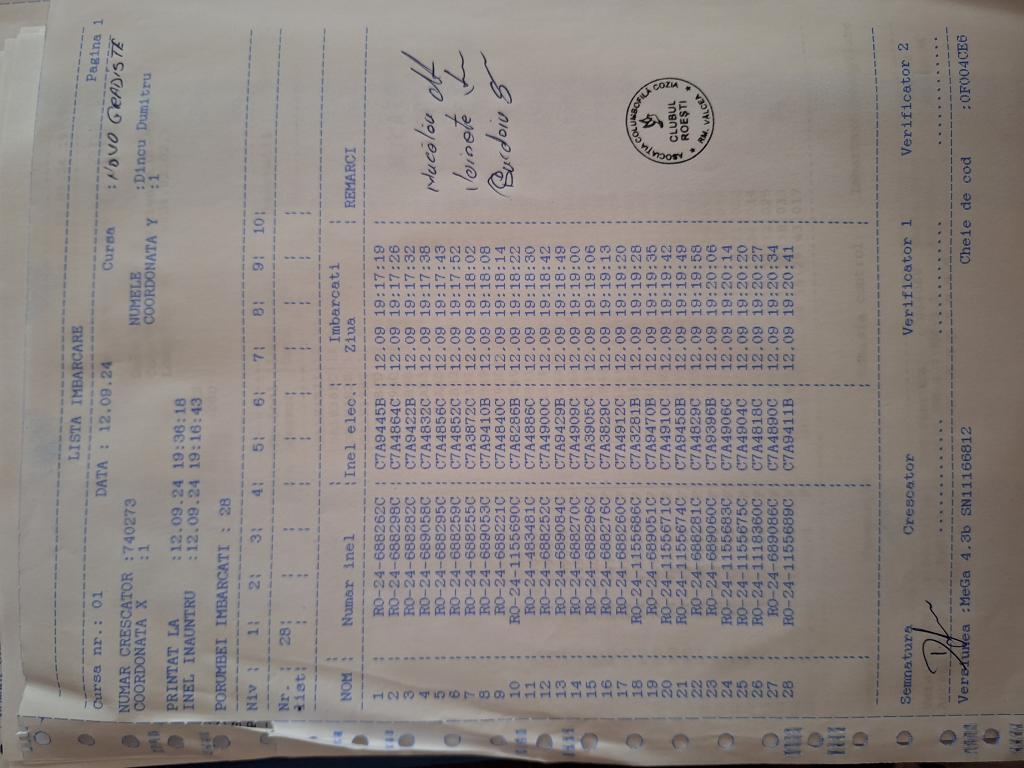 LISTA IMBARCARE Pagina 1
Cursa nr.: 01 DATA : 12.09.24 Cursa :NOVO GRADISTE
NUMAR CRESCATOR :740273 NUMELE :Dincu Dumitru
COORDONATA X :1 COORDONATA Y :1
PRINTAT LA :12.09.24 19:36:18
INEL INAUNTRU :12.09.24 19:16:43
PORUMBEI IMBARCATI : 28
Niv : 1: 2: 3: 4: 5: 6: 7: 8: 9: 10:
Nr. : 28:
list:
NOM : Numar inel : Inel elec. : Imbarcati Ziua : REMARCI
1 : RO-24-6888262C : C7A9445B : 12.09 19:17:19
2 : RO-24-6888298C : C7A4864C : 12.09 19:17:26
3 : RO-24-6888282C : C7A9422B : 12.09 19:17:32
4 : RO-24-6889058C : C7A4832C : 12.09 19:17:38
5 : RO-24-6888295C : C7A4856C : 12.09 19:17:43
6 : RO-24-6888259C : C7A4852C : 12.09 19:17:52
7 : RO-24-6888255C : C7A3872C : 12.09 19:18:02
8 : RO-24-6889053C : C7A9410B : 12.09 19:18:08
9 : RO-24-6888221C : C7A4840C : 12.09 19:18:14
10 : RO-24-1155690C : C7A8286B : 12.09 19:18:22
11 : RO-24-4834481C : C7A4886C : 12.09 19:18:30
12 : RO-24-6888252C : C7A4900C : 12.09 19:18:42
13 : RO-24-6889084C : C7A9429B : 12.09 19:18:49
14 : RO-24-6888270C : C7A4909C : 12.09 19:19:00
15 : RO-24-6888296C : C7A3905C : 12.09 19:19:06
16 : RO-24-6888276C : C7A3829C : 12.09 19:19:13
17 : RO-24-6888260C : C7A4912C : 12.09 19:19:20
18 : RO-24-1155686C : C7A3281B : 12.09 19:19:28
19 : RO-24-6889051C : C7A9470B : 12.09 19:19:35
20 : RO-24-1155671C : C7A4910C : 12.09 19:19:42
21 : RO-24-1155674C : C7A9458B : 12.09 19:19:49
22 : RO-24-6888281C : C7A4829C : 12.09 19:19:58
23 : RO-24-6889060C : C7A9396B : 12.09 19:20:06
24 : RO-24-1155683C : C7A4906C : 12.09 19:20:14
25 : RO-24-1155675C : C7A4904C : 12.09 19:20:20
26 : RO-24-1118360C : C7A4818C : 12.09 19:20:27
27 : RO-24-6889086C : C7A4890C : 12.09 19:20:34
28 : RO-24-1155689C : C7A9411B : 12.09 19:20:41
ASOCIAȚIA COLUMBOFILĂ COZIA
CLUBUL
ROEȘTI
RM. VÂLCEA
Semnatura Crescator Verificator 1 Verificator 2
Versiunea :MeGa 4.3b SN11166812 Cheie de cod :0F004CE6